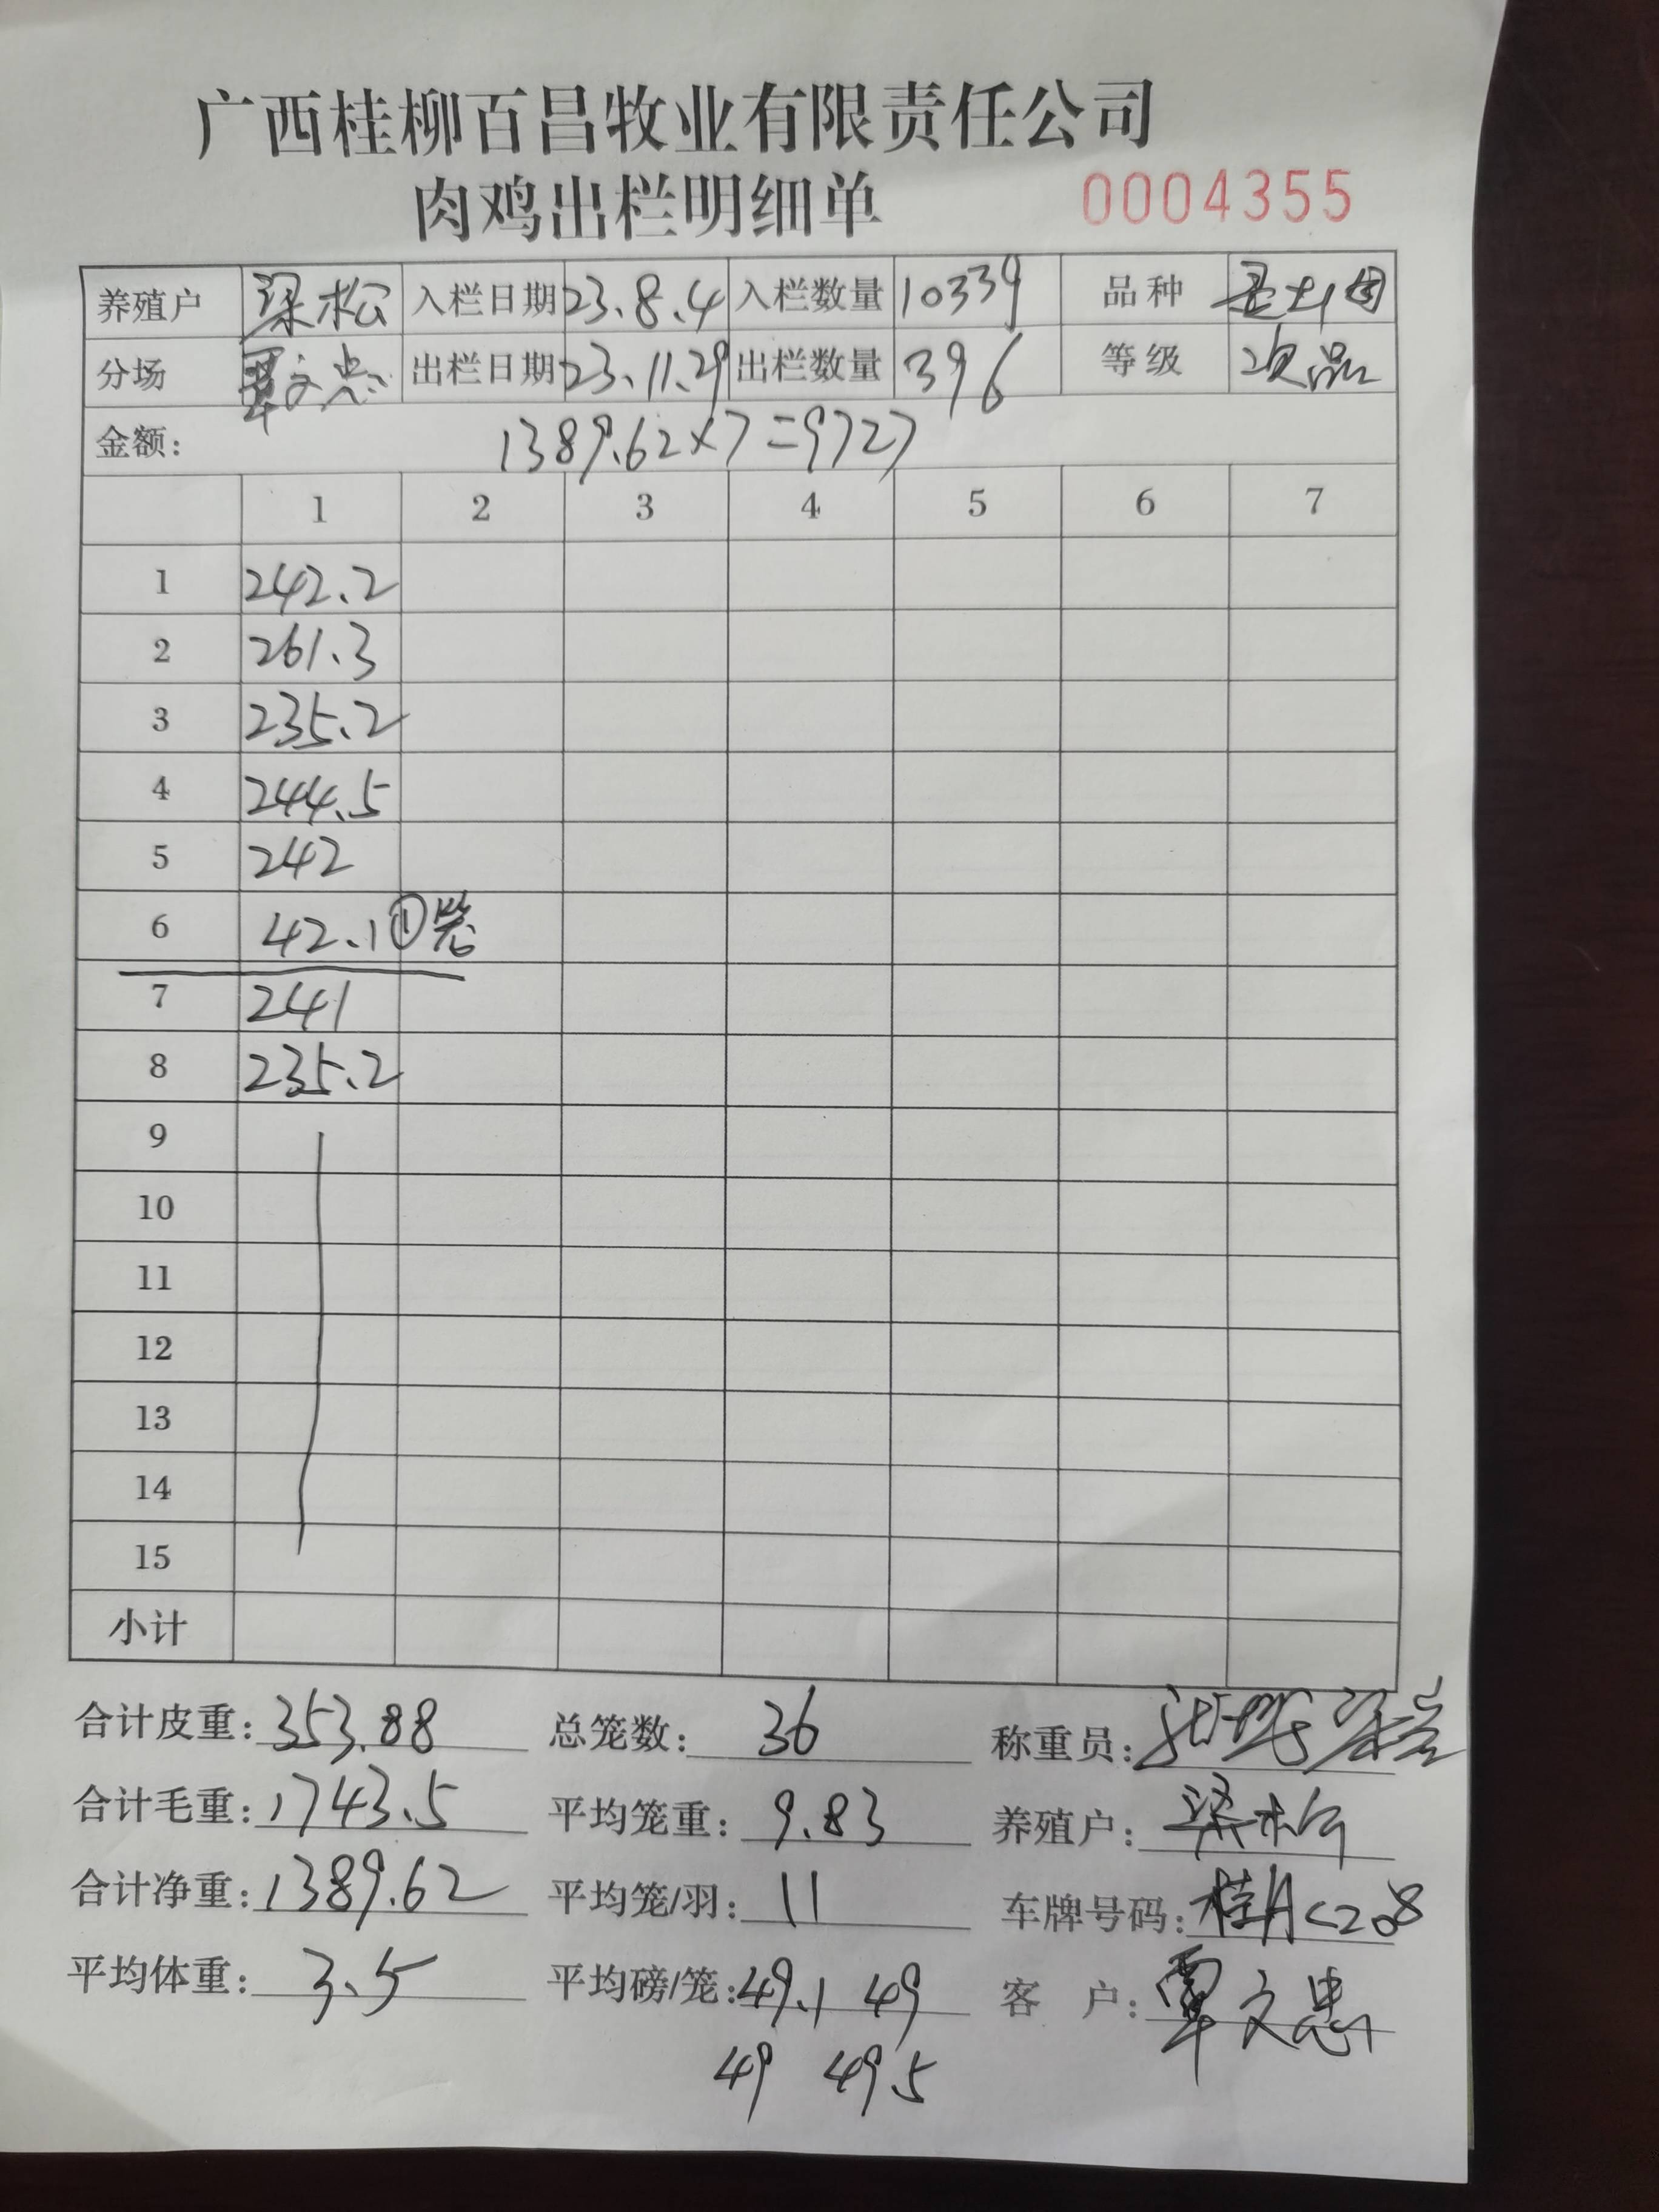 广西桂柳百昌牧业有限责任公司
肉鸡出栏明细单 0004355
养殖户 梁松 入栏日期 23.8.4 入栏数量 10339 品种
分场 覃文忠 出栏日期 23.11.29 出栏数量 396 等级 次品
金额: 1389.62×7=9727
1 2 3 4 5 6 7
1 242.2
2 261.3
3 235.2
4 244.5
5 242
6 42.1 ①笼
7 241
8 235.2
9
10
11
12
13
14
15
小计
合计皮重: 353.88 总笼数: 36 称重员:
合计毛重: 1743.5 平均笼重: 9.83 养殖户: 梁松
合计净重: 1389.62 平均笼/羽: 11 车牌号码: 桂AC208
平均体重: 3.5 平均磅/笼: 49.1 49 客户: 覃文忠
49 49.5